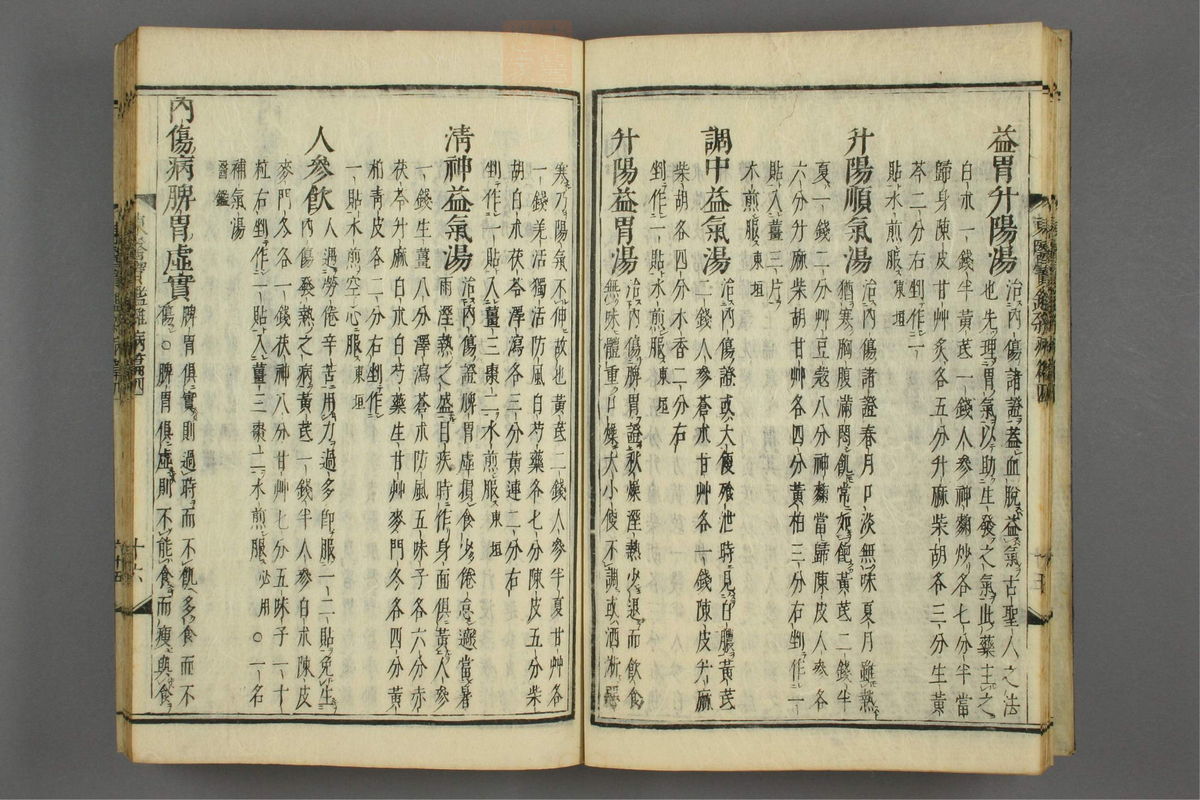 益胃升陽湯 治內傷諸證蓋血脫益氣古聖人之法
也先理胃氣以助生發之氣此藥主之
白朮一錢半黃芪一錢人參神麴炒各七分半當
歸身陳皮甘艸炙各五分升麻柴胡各三分生黃
芩二分右剉作一
貼水煎服東垣
升陽順氣湯 治內傷諸證春月口淡無味夏月雖熱
猶寒胸腹滿悶飢常如飽黃芪二錢半
夏一錢二分艸豆蔲八分神麴當歸陳皮人參各
六分升麻柴胡甘艸各四分黃栢三分右剉作一
貼入薑三片
水煎服東垣
調中益氣湯 治內傷證或大便飱泄時見白膿黃芪
二錢人參蒼朮甘艸各一錢陳皮升麻
柴胡各四分木香二分右
剉作一貼水煎服東垣
升陽益胃湯 治內傷脾胃證秋燥溼熱少退而飮食
無味體重口燥大小便不調或洒淅惡
寒乃陽氣不伸故也黃芪二錢人參半夏甘艸各
一錢羌活獨活防風白芍藥各七分陳皮五分柴
胡白朮茯苓澤瀉各三分黃連二分右
剉作一貼入薑三棗二水煎服東垣
淸神益氣湯 治內傷證脾胃虛損食少倦怠遯當暑
雨溼熱之盛目疾時作身面俱黃人參
一錢生薑八分澤瀉蒼朮防風五味子各六分赤
茯苓升麻白朮白芍藥生甘艸麥門冬各四分黃
栢靑皮各二分右剉作
一貼水煎空心服東垣
人參飮 人過勞倦辛苦用力過多卽服一二貼免生
內傷發熱之病黃芪一錢半人參白朮陳皮
麥門冬各一錢茯神八分甘艸七分五味子二十
粒右剉作一貼入薑三棗二水煎服必用○一名
補氣湯
醫鑑
內傷病脾胃虛實 脾胃俱實則過時而不飢多食而不
傷○脾胃俱虛則不能食而瘦與食